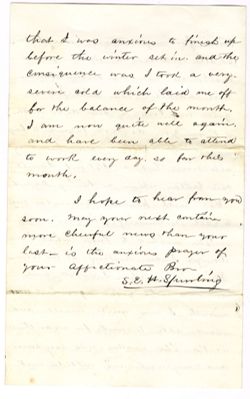 that I was anxious to finish up
before the winter set in. and the
consequence was I took a very
severe cold which laid me off
for the balance of the month.
I am now quite well again,
and have been able to attend
to work every day. so far this
month.
I hope to hear from you
soon. may your next contain
more cheerful news than your
last — is the anxious prayer of
your Affectionate Bro
S. E. H. Spurling